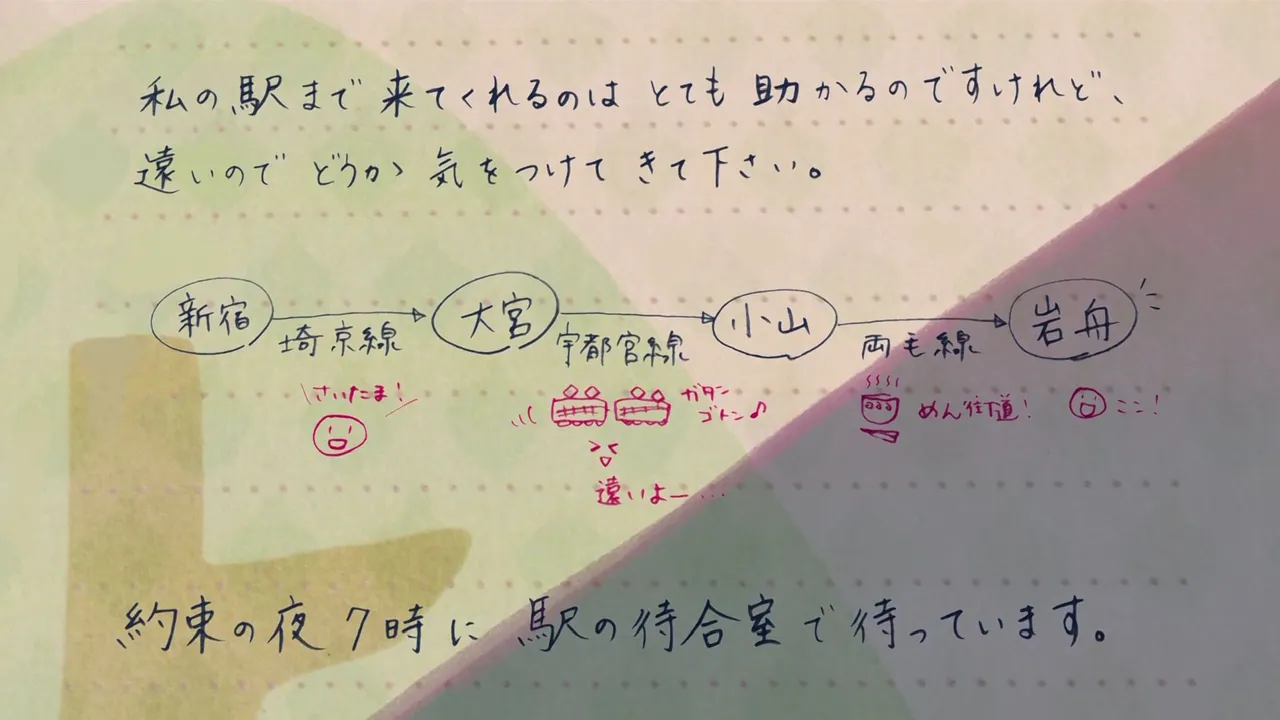 私の駅まで来てくれるのは とても 助かるのですけれど、
遠いので どうか 気をつけて きて下さい。
新宿 埼京線 大宮 宇都宮線 小山 両毛線 岩舟
さいたま!
ガタン
ゴトン♪
めん街道!
ここ!
遠いよー…
約束の夜7時に 駅の待合室で待っています。